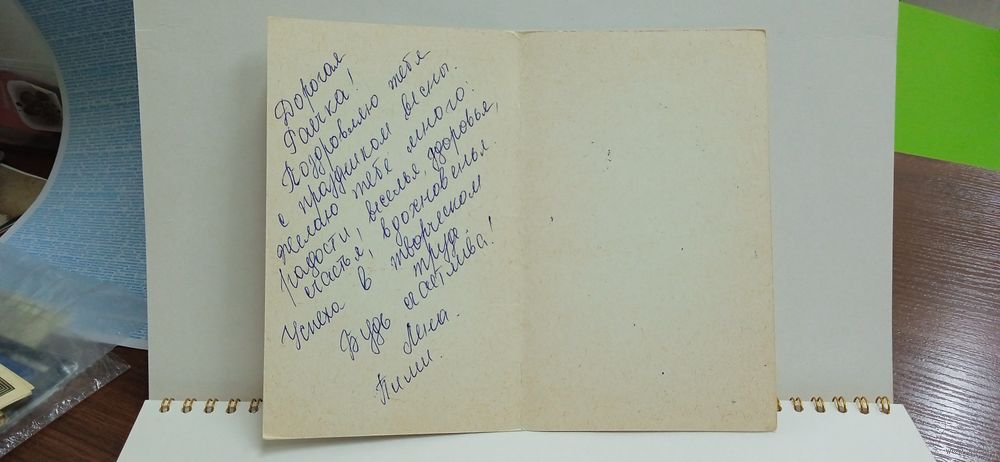 Дорогая
Раечка!
Поздровляю тебя
с праздником весны.
Желаю тебе много:
радости, веселья, здоровья,
счастья, вдохновенья.
Успеха в творческом
труде
Будь счастлива!
Лена.